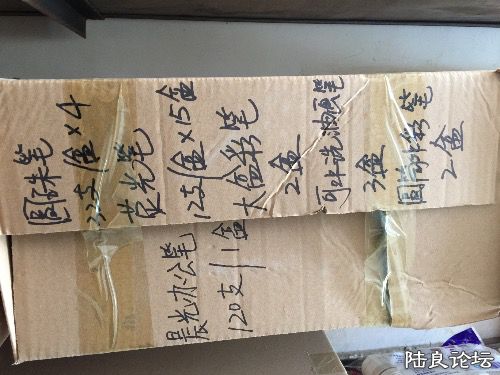 圆珠笔
32支/盒×4
荧光笔
12支/盒×15盒
大盒彩笔
2盒
可水洗油画笔
3盒
固
2盒
晨光办公笔
120支/1盒
陆良论坛